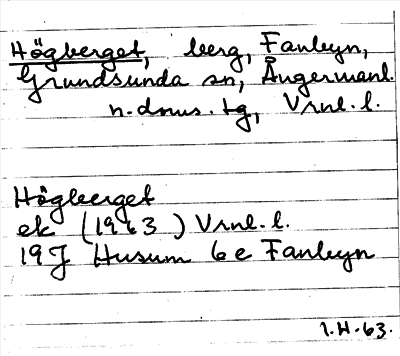 Högberget, berg, Fanbyn,
Grundsunda sn, Ångermanl.
n. dmus. tg, Vrnl. l.
Högberget
ek (1963) Vrnl. l.
19J Husum 6e Fanbyn
I.H.63.